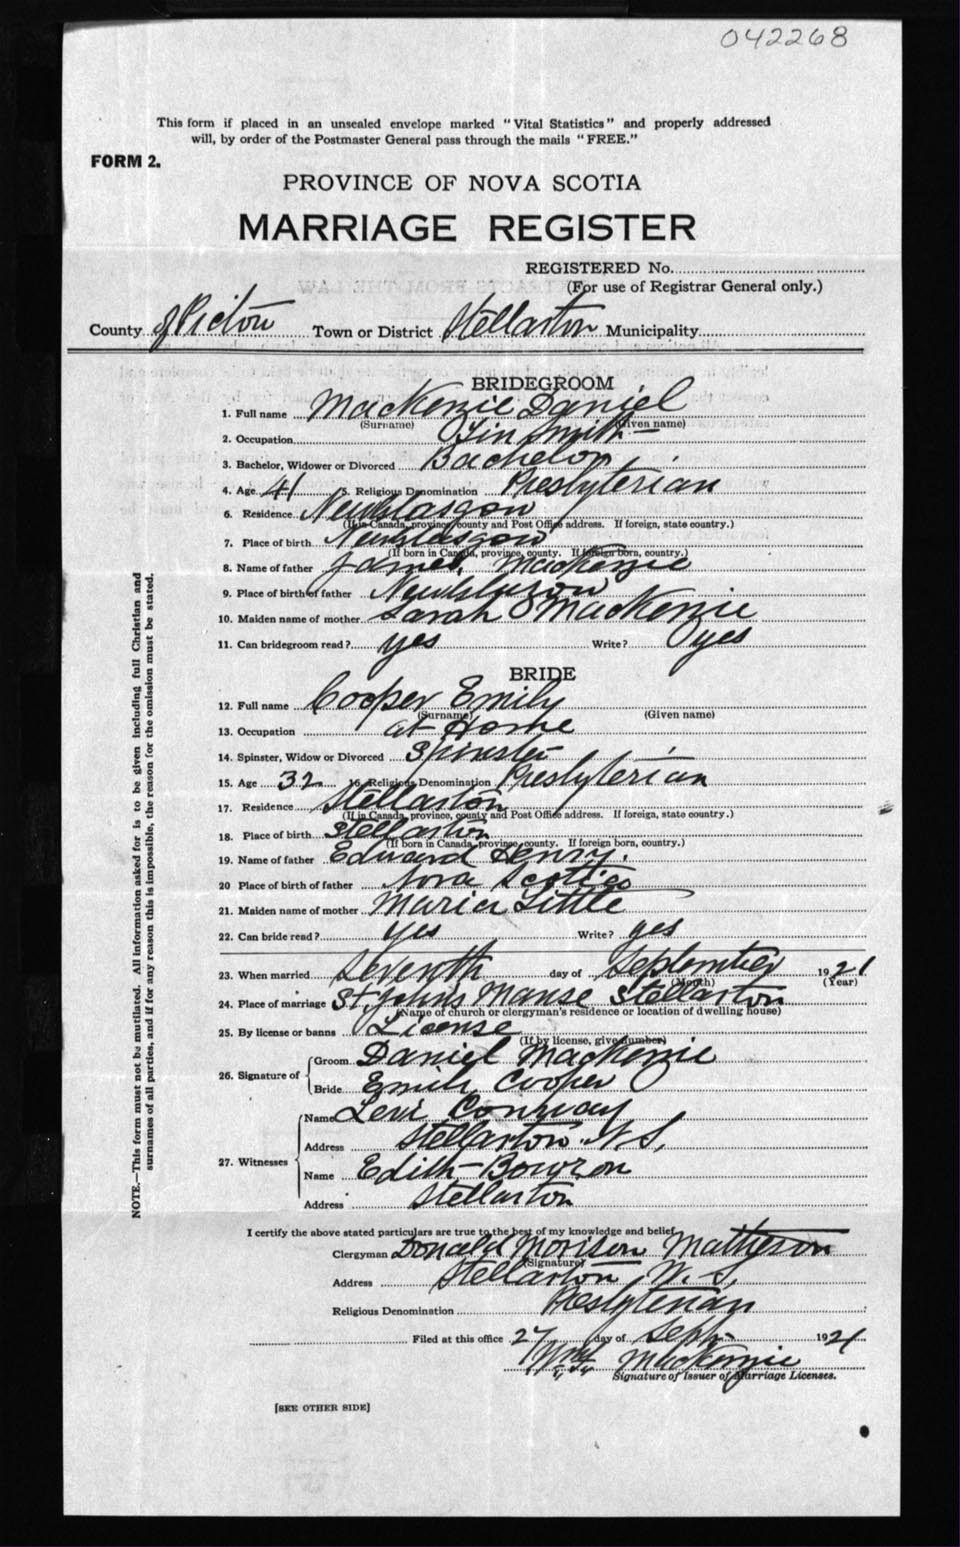 042268
This form if placed in an unsealed envelope marked "Vital Statistics" and properly addressed
will, by order of the Postmaster General pass through the mails "FREE."
FORM 2.
PROVINCE OF NOVA SCOTIA
MARRIAGE REGISTER
REGISTERED No.
(For use of Registrar General only.)
County of Pictou Town or District Stellarton Municipality
BRIDEGROOM
1. Full name MacKenzie Daniel
(Surname) (Given name)
2. Occupation Tin Smith
3. Bachelor, Widower or Divorced Bachelor
4. Age 41 5. Religious Denomination Presbyterian
6. Residence New Glasgow
(If in Canada, province, county and Post Office address. If foreign, state country.)
7. Place of birth New Glasgow
(If born in Canada, province, county. If foreign born, country.)
8. Name of father James MacKenzie
9. Place of birth of father New Glasgow
10. Maiden name of mother Sarah MacKenzie
11. Can bridegroom read? yes Write? yes
BRIDE
12. Full name Cooper Emily
(Surname) (Given name)
13. Occupation at Home
14. Spinster, Widow or Divorced Spinster
15. Age 32 16. Religious Denomination Presbyterian
17. Residence Stellarton
(If in Canada, province, county and Post Office address. If foreign, state country.)
18. Place of birth Stellarton
(If born in Canada, province, county. If foreign born, country.)
19. Name of father Edward Henry.
20 Place of birth of father Nova Scotia
21. Maiden name of mother Maria Little
22. Can bride read? yes Write? yes
23. When married Seventh day of September 1921
(Month) (Year)
24. Place of marriage St. John's Manse Stellarton
(Name of church or clergyman's residence or location of dwelling house)
25. By license or banns License
(If by license, give number)
26. Signature of Groom Daniel MacKenzie
Bride Emily Cooper
27. Witnesses Name Levi Conway
Address Stellarton N.S.
Name Edith Bowron
Address Stellarton
I certify the above stated particulars are true to the best of my knowledge and belief.
Clergyman Donald Morison Matheson
(Signature)
Address Stellarton, N.S.
Religious Denomination Presbyterian
Filed at this office 27 day of Sept. 1921
MacKenzie
Signature of Issuer of Marriage Licenses.
[SEE OTHER SIDE]
NOTE.—This form must not be mutilated. All information asked for is to be given including full Christian and
surnames of all parties, and if for any reason this is impossible, the reason for the omission must be stated.